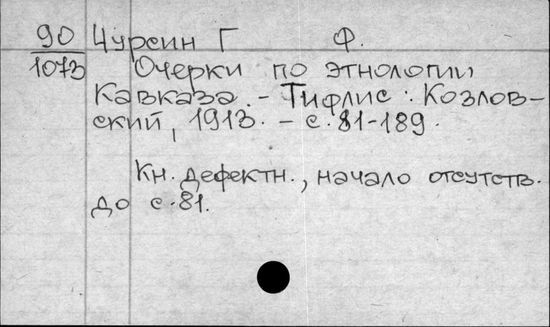 90 Чурсин Г Ф.
1073 Очерки по этнологии
Кавказа. - Тифлис: Козлов-
ский, 1913. - с. 81-189.
Кн. дефектн., начало отсутств.
до с. 81.